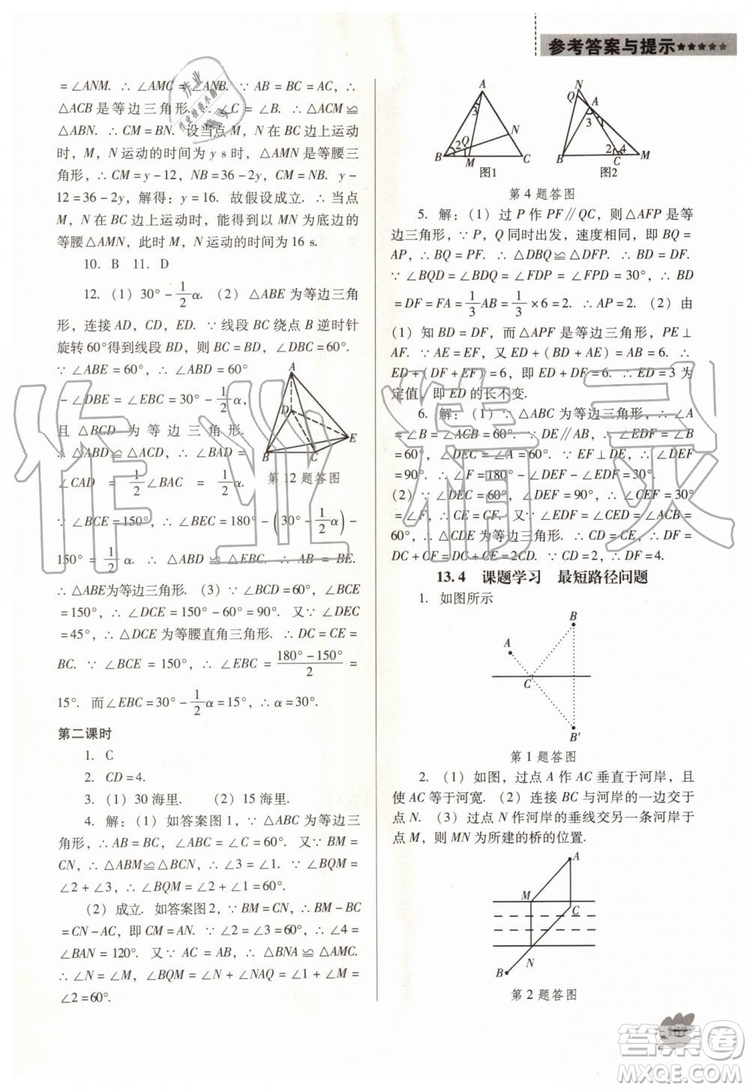 参考答案与提示★★★★★
=∠ANM. ∴ ∠AMC=∠ANB. ∵ AB=BC=AC, ∴
△ACB是等边三角形, ∴ ∠C=∠B, ∴ △ACM≌
△ABN, ∴ CM=BN. 设当点M、N在BC边上运动
时, M、N运动的时间为y s时, △AMN是等腰三角
形, ∴ CM=y-12, NB=36-2y, CM=NB. y-
12=36-2y, 解得: y=16. 故假设成立. ∴ 当点
M、N在BC边上运动时, 能得到以MN为底边的
等腰△AMN, 此时M、N运动的时间为16 s.
10. B 11. D
12. (1) 30°-1/2α. (2) △ABE为等边三角
形, 连接AD, CD, ED. ∵ 线段BC绕点B逆时针
旋转60°得到线段BD, 则BC=BD, ∠DBC=60°.
∵ ∠ABE=60°, ∴ ∠ABD=60°
-∠DBE=∠EBC=30°-1/2α,
且△BCD为等边三角形.
∴ △ABD≌△ACD, ∴ ∠BAD=
∠CAD=1/2∠BAC=1/2α. ∵
A
D
E
B
C
第12题答图
∠BCE=150°, ∴ ∠BEC=180°-(30°-1/2α)-
150°=1/2α. ∴ △ABD≌△EBC. ∴ AB=BE.
∴ △ABE为等边三角形. (3) ∵ ∠BCD=60°, ∠BCE
=150°, ∴ ∠DCE=150°-60°=90°. 又∵ ∠DEC
=45°, ∴ △DCE为等腰直角三角形. ∴ DC=CE=
BC. ∵ ∠BCE=150°, ∴ ∠EBC=(180°-150°)/2=
15°. 而∠EBC=30°-1/2α=15°, ∴ α=30°.
第二课时
1. C
2. CD=4.
3. (1) 30海里. (2) 15海里.
4. 解: (1) 如答案图1, ∵ △ABC为等边三角
形, ∴ AB=BC, ∠ABC=∠C=60°. 又∵ BM=
CN, ∴ △ABM≌△BCN, ∴ ∠1=∠2, ∴ ∠BQM
=∠2+∠3, ∴ ∠BQM=∠1+∠3=60°.
(2) 成立. 如答案图2, ∵ BM=CN, ∴ BM-BC
=CN-AC, ∴ AN=CM. ∵ ∠1=60°, ∴ ∠4=
∠BAN=120°. 又∵ AC=AB, ∴ △BNA≌△AMC.
∴ ∠N=∠M, ∴ ∠BQM=∠N+∠NAQ=∠1=∠M+
∠2=60°.
A
3
N
2
Q
1
B
M
C
图1
N
Q
A
3
1
2
4
B
C
M
图2
第4题答图
5. 解: (1) 过P作PF∥QC, 则△AFP是等
边三角形, ∵ P, Q同时出发, 速度相同, 即BQ=
AP, ∴ BQ=PF. ∴ △DBQ≌△DFP. ∴ BD=DF.
∵ ∠BQD=∠BDQ=∠FDP=∠FPD=30°, ∴ BD
=DF=FA=1/3AB=1/3×6=2. ∴ AP=2. (2) 由
(1) 知BD=DF, 而△APF是等边三角形, PE⊥
AF. ∴ AE=EF, 又ED+(BD+AE)=AB=6. ∴
ED+(DF+EF)=6. ∴ ED+ED=6. ∴ ED=3为
定值, 即ED的长不变.
6. 解: (1) ∵ △ABC为等边三角形, ∴ ∠A
=∠B=∠ACB=60°. ∵ DE∥AB, ∴ ∠EDF=∠B=
60°, ∠DEC=∠A=60°. ∵ EF⊥DE, ∴ ∠DEF=
90°. ∴ ∠F=180°-∠DEF-∠EDF=30°.
(2) ∵ ∠DEC=60°, ∴ ∠EDF=∠CEF=∠DEF-
∠DEC=30°. ∵ ∠EDF=∠DEC=60°. ∴ CD=CE=
2. ∴ CF=CE=2CD. ∴ DF=4.
13.4 课题学习 最短路径问题
1. 如图所示
B
A
C
B′
第1题答图
2. (1) 如图, 过点A作AC垂直于河岸, 且
使AC等于河宽. (2) 连接BC与河岸的一边交于
点N. (3) 过河岸的垂线交另一条河岸于
点M, 则MN为所建的桥的位置.
A
M
C
N
B
第2题答图
作业精灵
答案圈
MXQE.COM